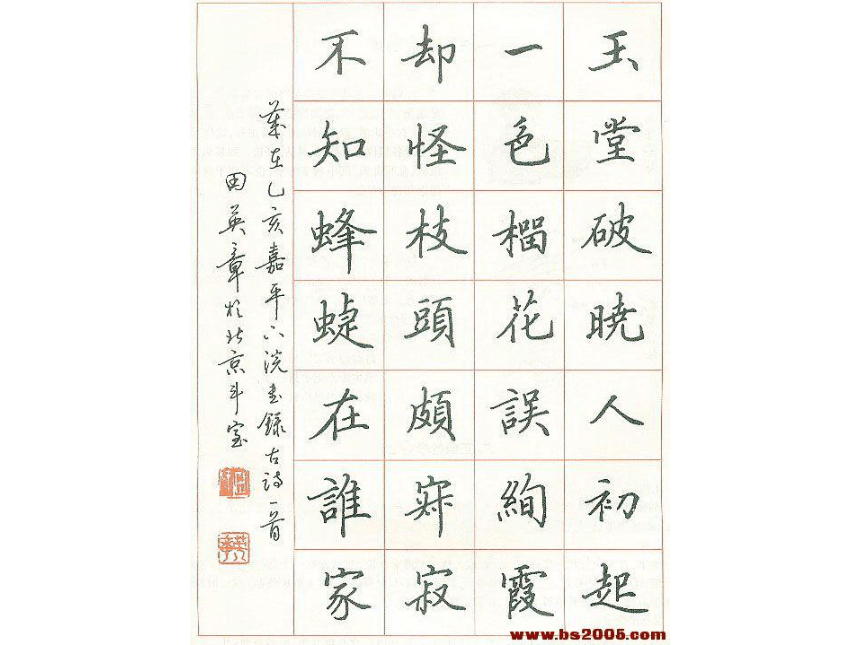 玉堂破曉人初起
一色榴花誤絢霞
却怪枝頭頗寂寂
不知蜂蜨在誰家
歲在乙亥嘉平下浣書錄古詩一首
田英章於北京斗室
www.bs2005.com